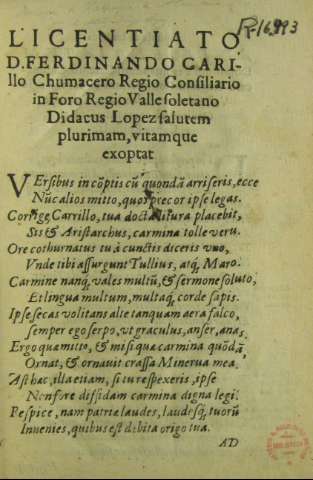 LICENTIATO
D. FERDINANDO CARI-
llo Chumacero Regio Consiliario
in Foro Regio Valle soletano
Didacus Lopez salutem
plurimam, vitamque
exoptat
VErsibus incōptis cū quondā arriseris, ecce
Nūc alios mitto, quos precor ipse legas.
Corrige, Carrillo, tua docta litura placebit,
Sis & Aristarchus, carmina tolle veru.
Ore cothurnatus tu à cunctis diceris vno,
Vnde tibi assurgunt Tullius, atq; Maro.
Carmine nanq; vales multū, & sermone soluto,
Et lingua multum, multaq; corde sapis.
Ipse secas volitans alte tanquam aera falco,
semper ego serpo, vt graculus, anser, anas.
Ergo quæ mitto, & misi quæ carmina quōdā
Ornat, & ornauit crassa Minerua mea.
Ast hæc, illa etiam, si tu respexeris, ipse
Non fore diffidam carmina digna legi.
Respice, nam patriæ laudes, laudesq; tuorū
Inuenies, quibus est debita origo tua.
AD